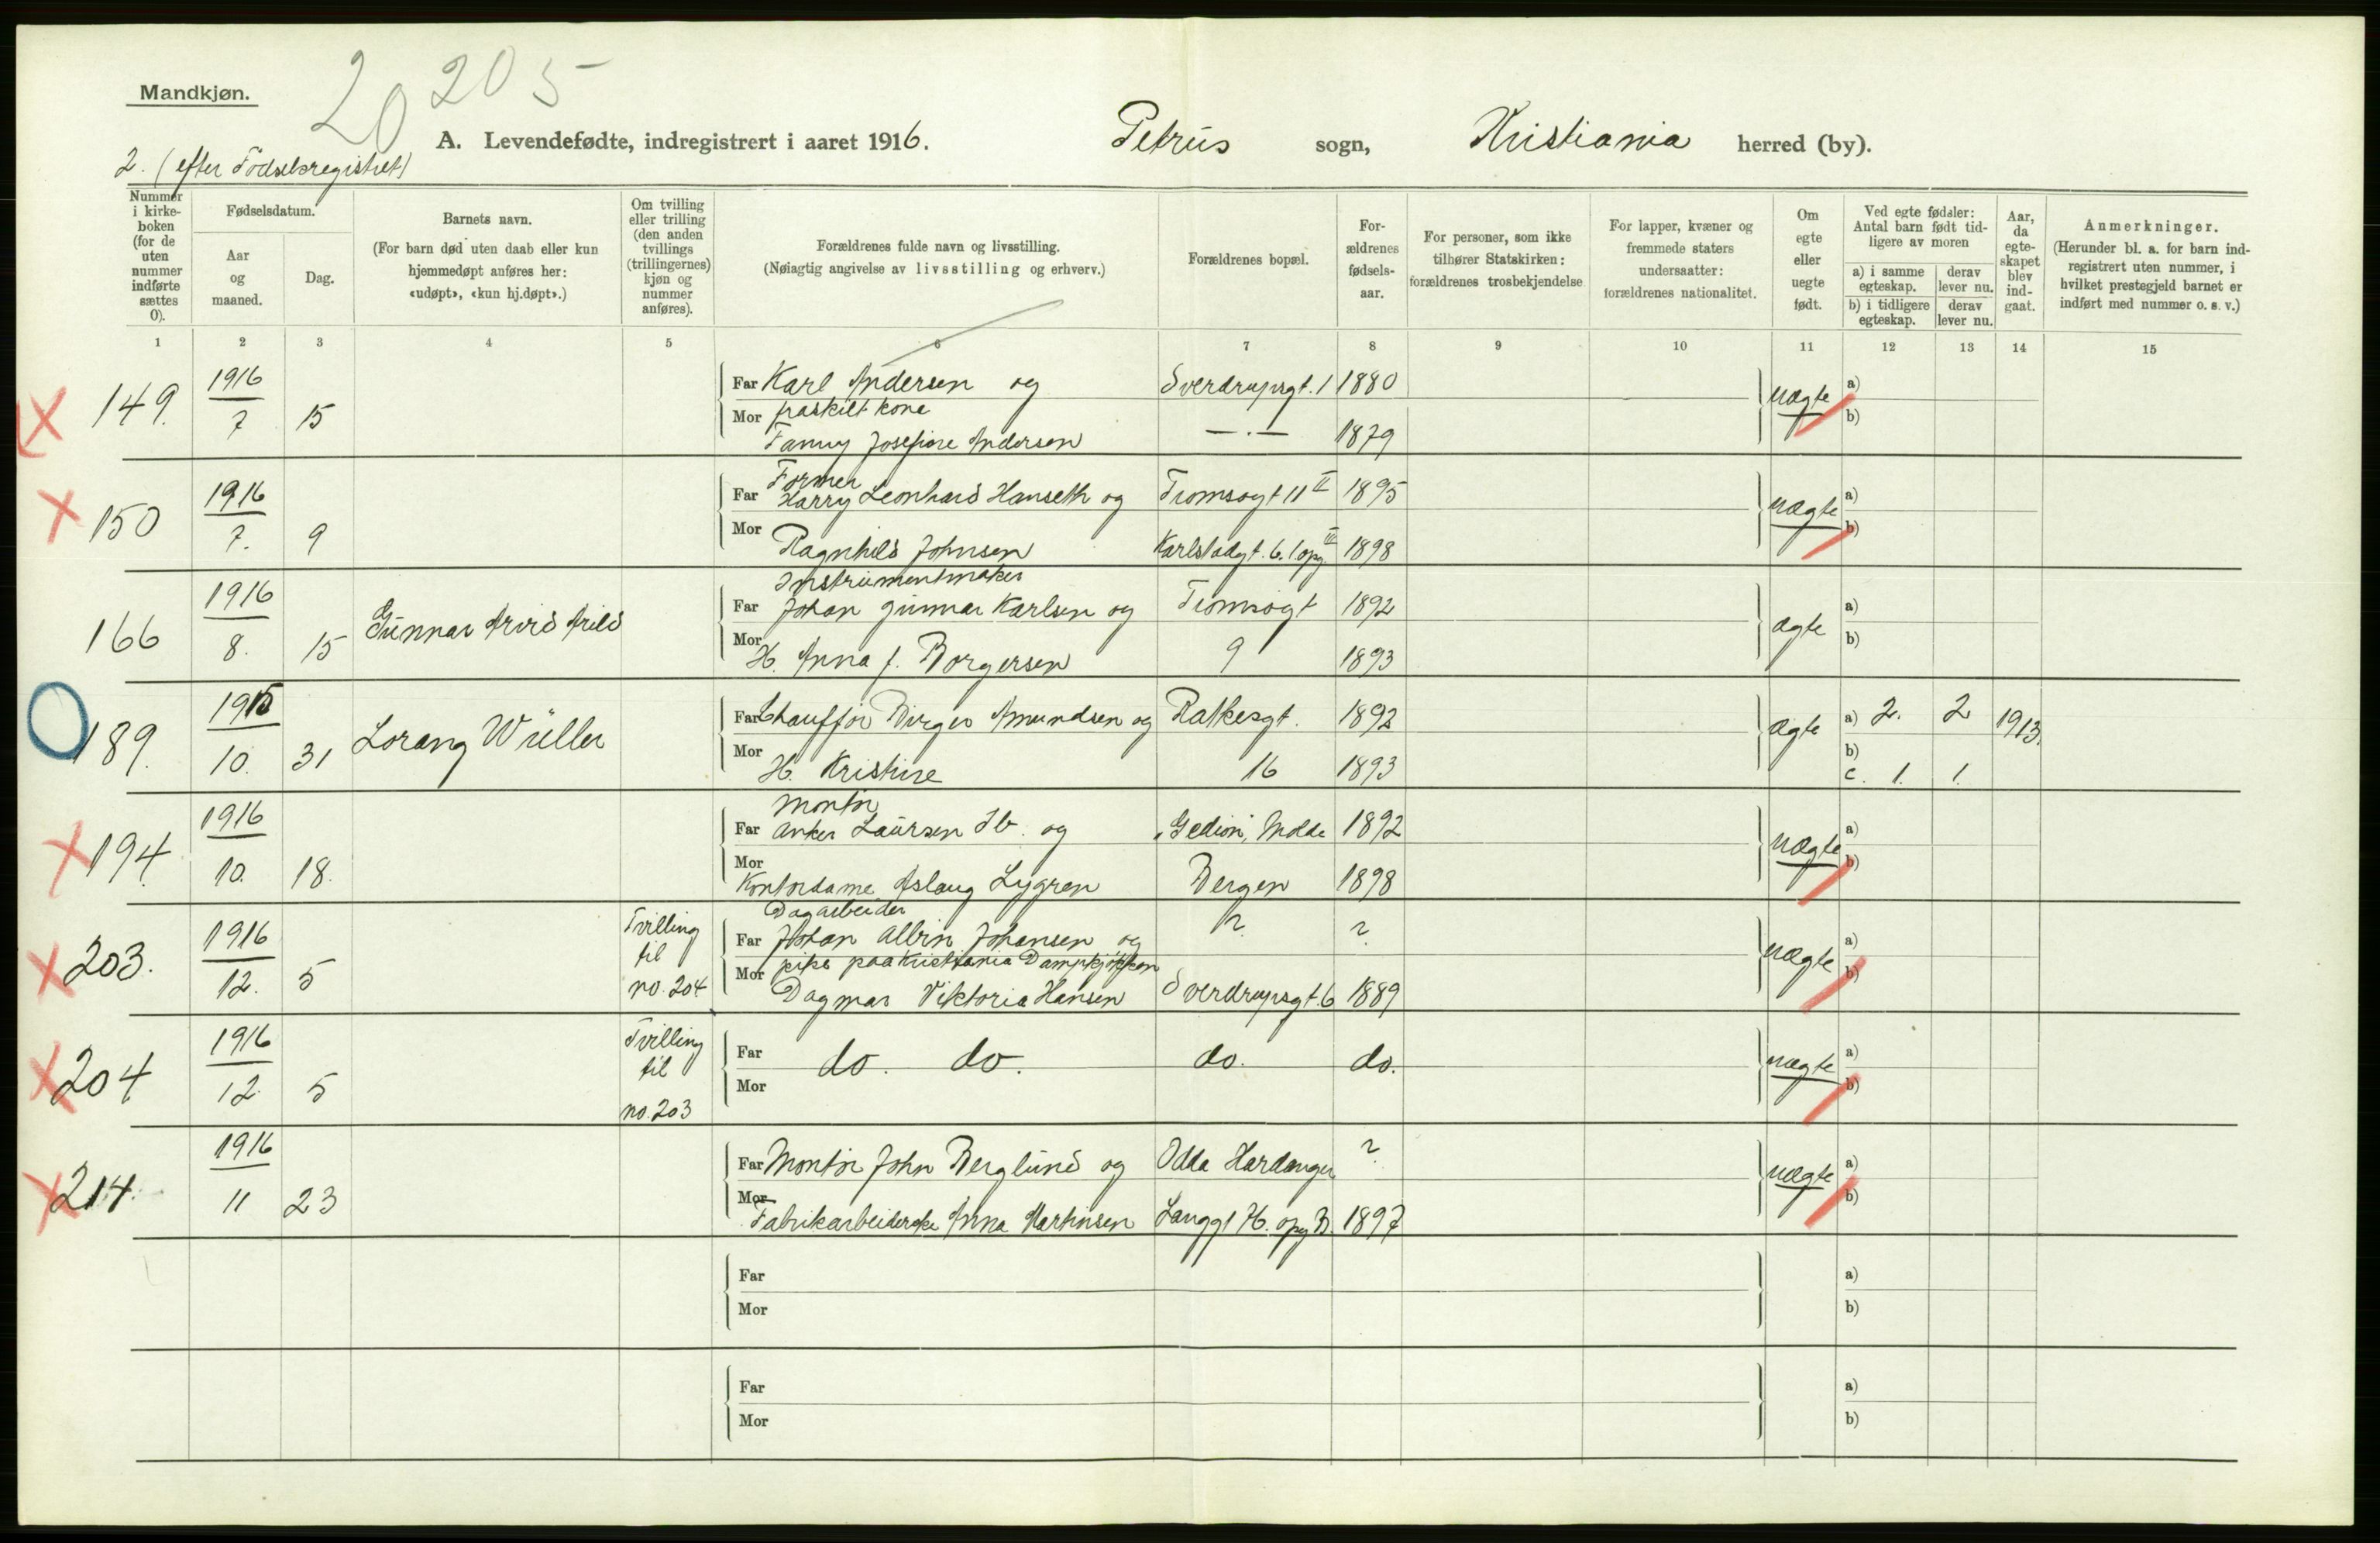 Mandkjøn.
20 205
A. Levendefødte, indregistrert i aaret 1916. Petrus sogn, Kristiania herred (by).
2. (efter Fødselsregistret)
Nummer i kirkeboken (for de uten nummer indførte sættes 0).
Fødselsdatum.
Aar og maaned.
Dag.
Barnets navn.
(For barn død uten daab eller kun hjemmedøpt anføres her: «udøpt», «kun hj.døpt».)
Om tvilling eller trilling (den anden tvillings (trillingernes) kjøn og nummer anføres).
Forældrenes fulde navn og livsstilling.
(Nøiagtig angivelse av livsstilling og erhverv.)
Forældrenes bopæl.
Forældrenes fødselsaar.
For personer, som ikke tilhører Statskirken: forældrenes trosbekjendelse
For lapper, kvæner og fremmede staters undersaatter: forældrenes nationalitet.
Om egte eller uegte født.
Ved egte fødsler: Antal barn født tidligere av moren
a) i samme egteskap. derav lever nu.
b) i tidligere egteskap. derav lever nu.
Aar, da egteskapet blev indgaat.
Anmerkninger.
(Herunder bl. a. for barn indregistrert uten nummer, i hvilket prestegjeld barnet er indført med nummer o. s. v.)
1 2 3 4 5 6 7 8 9 10 11 12 13 14 15
149. 1916 7 15 Far Karl Andersen og Sverdrupsgt. 1 1880 uægte a)
Mor fraskilt kone b)
Fanny Josefine Andersen —.— 1879
150 1916 7. 9 Former
Far Harry Leonhard Hanseth og Tromsøgt 11 II 1895 uægte a)
Mor Ragnhild Johnsen Karlstadgt. 6. 1 opg. III 1898 b)
166 1916 8. 15 Gunnar Arvid Arild Instrumentmaker
Far Johan Gunnar Karlsen og Tromsøgt 1892 ægte a)
Mor H. Anna f. Borgersen 9 1893 b)
189. 1915 10. 31 Lorang Wüller Far Chauffør Birger Amundsen og Ratkesgt. 1892 ægte a) 2. 2 1913.
Mor H. Kristine 16 1893 b)
c. 1. 1.
194. 1916 10. 18. Montør
Far Anker Laursen Ib. og "Gedion", Molde 1892 uægte a)
Mor Kontordame Aslaug Lygren Bergen 1898 b)
203. 1916 12. 5 Tvilling til no. 204 Dagarbeider
Far Johan Albin Johansen og ? ? uægte a)
Mor pike paa Kristiania Dampkjøkken b)
Dagmar Viktoria Hansen Sverdrupsgt. 6 1889
204 1916 12. 5 Tvilling til no. 203 Far do. do. do. do. uægte a)
Mor b)
214. 1916 11 23 Far Montør John Berglund og Odda Hardanger ? uægte a)
Mor Fabrikarbeiderske Anna Martinsen Langgt H. opg B. 1897 b)
Far a)
Mor b)
Far a)
Mor b)